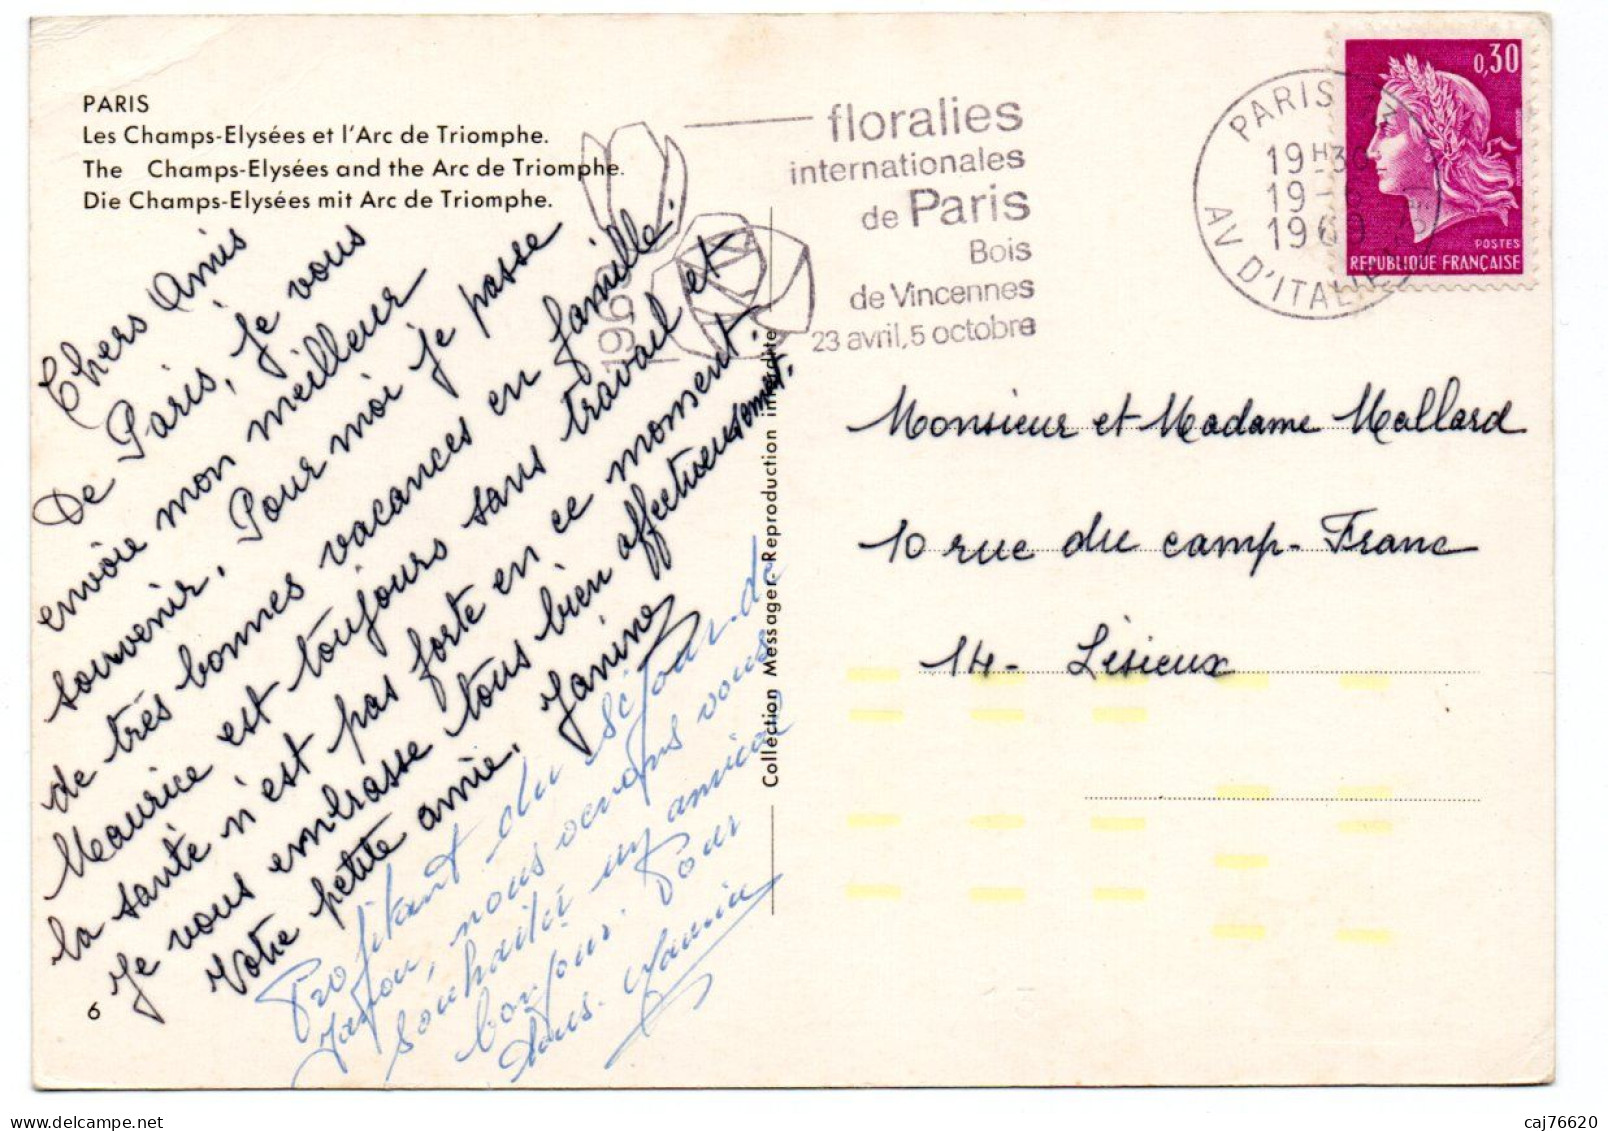 PARIS
Les Champs-Elysées et l'Arc de Triomphe.
The Champs-Elysées and the Arc de Triomphe.
Die Champs-Elysées mit Arc de Triomphe.
floralies
internationales
de Paris
Bois
de Vincennes
23 avril, 5 octobre
1969
PARIS
19H30
19 -
1969
AV D'ITALIE
0,30
POSTES
REPUBLIQUE FRANÇAISE
Chers Amis
De Paris, je vous
envoie mon meilleur
souvenir. Pour moi je passe
de très bonnes vacances en famille.
Maurice est toujours sans travail et
la santé n'est pas forte en ce moment.
Je vous embrasse tous bien affectueusement.
Votre petite amie. Janine
Profitant du séjour de
nous venons vous
souhaiter un amical
bonjour. Pour
tous.
Collection Messager-Reproduction interdite
Monsieur et Madame Mallard
10 rue du camp-Franc
14- Lisieux
6
caj76620